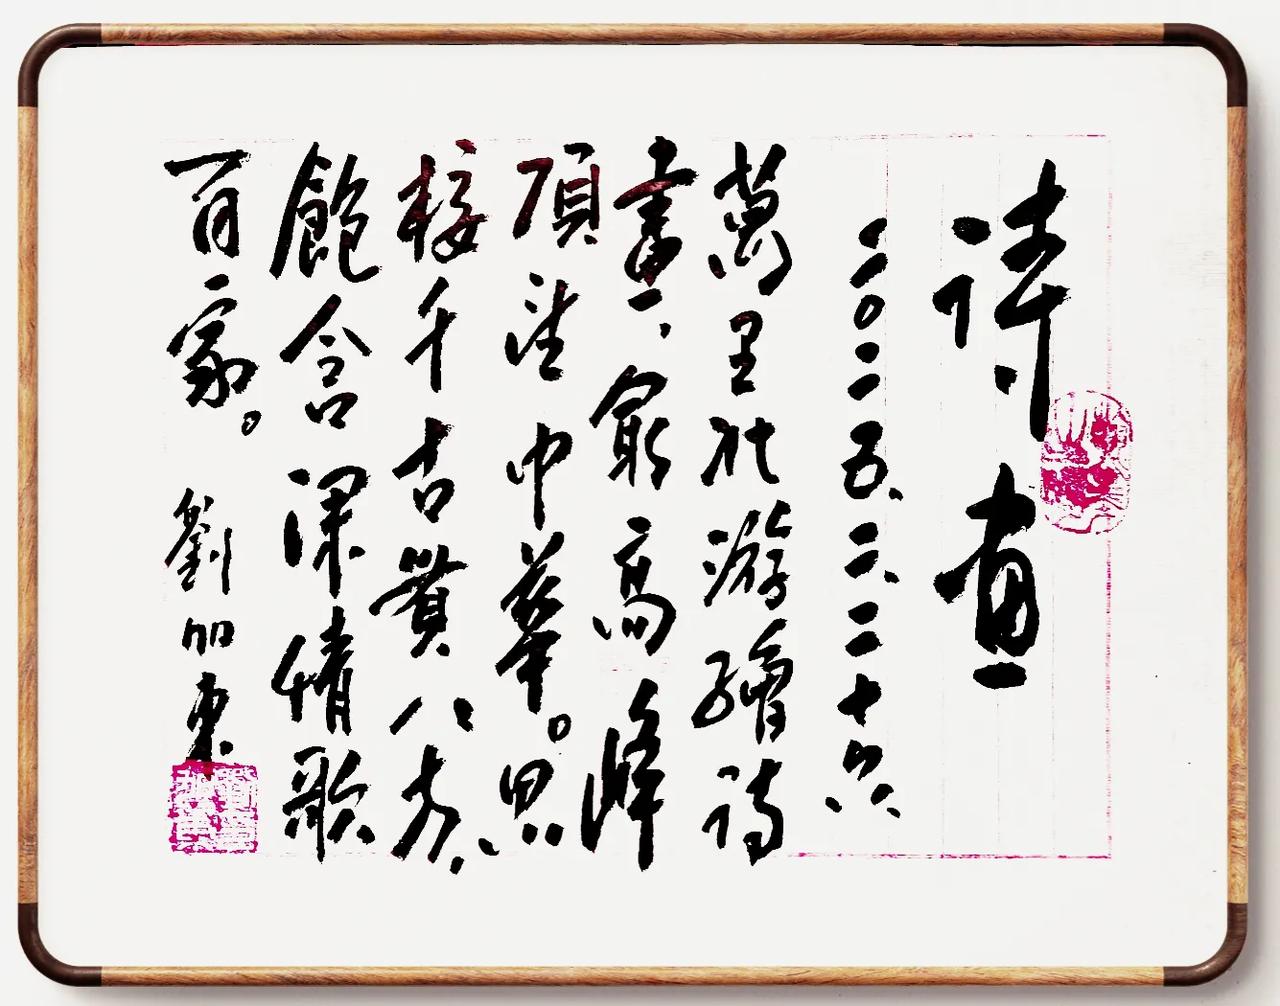 詩畫
二〇二五、二、二十六
萬里壯游繪詩
畫，最高峰
頂望中華。思
接千古貫八方，
飽含深情歌
百家。劉加東